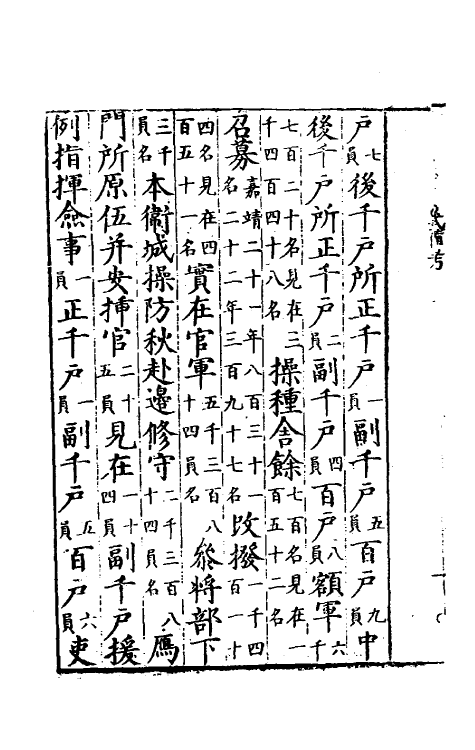 戶七員後千戶所正千戶一員副千戶五員百戶九員中
後千戶所正千戶二員副千戶四員百戶八員額軍六千
七百二十名見在三千四百四十八名操種舍餘七百名見在一百五十二名
召募嘉靖二十一年八百三十一名二十二年三百九十七名改撥一千四百一十
四名見在四百五十一名實在官軍五千三百八十四員名叅將部下
三千員名本衛城操防秋赴邊修守二千三百八十四員名鴈
門所原伍并安揷官二十五員見在一十四員副千戶援
例指揮僉事一員正千戶一員副千戶五員百戶六員吏